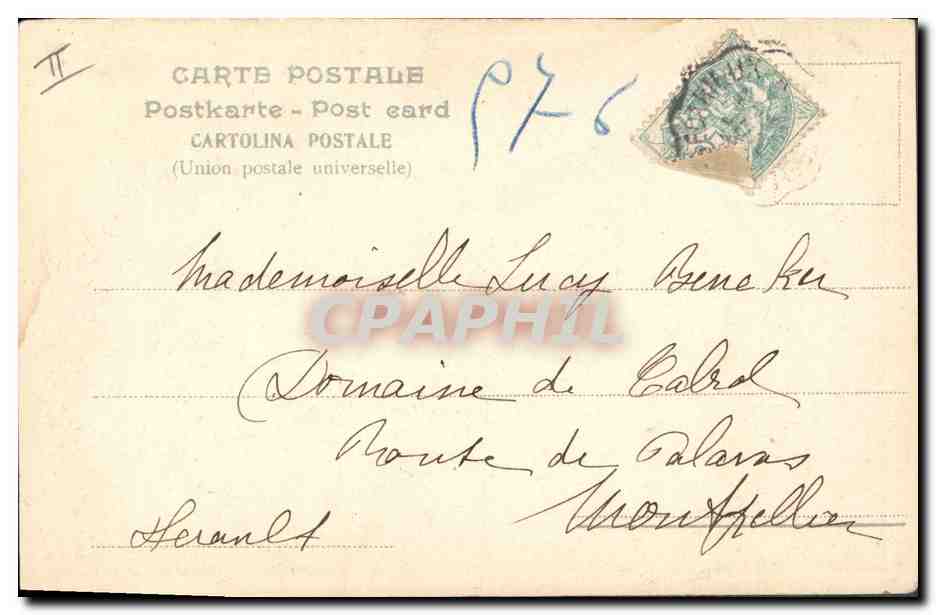 II
CARTE POSTALE
Postkarte - Post card
CARTOLINA POSTALE
(Union postale universelle)
976
Mademoiselle Lucy Beneker
CPAPHIL
Domaine de Cabrol
Route de Palavas
Montpellier
Herault